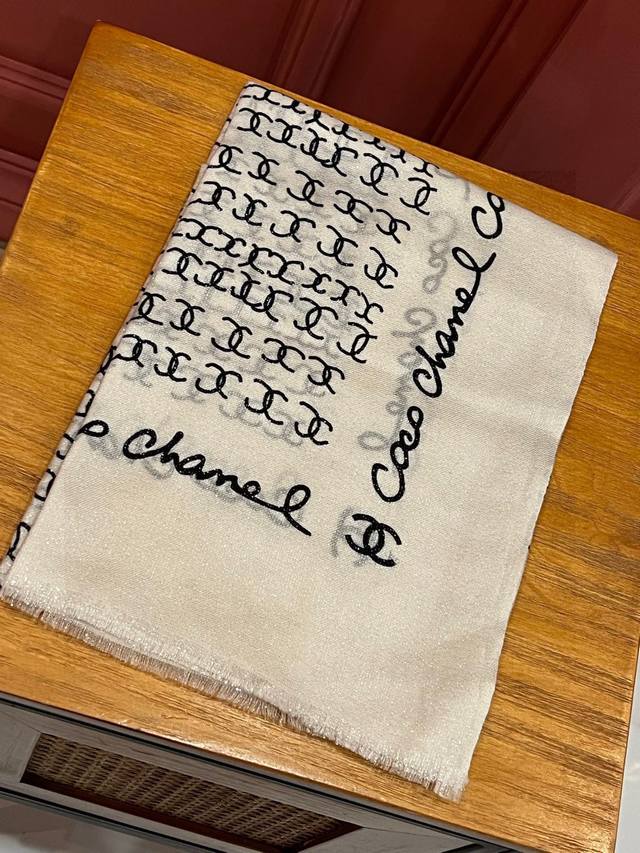 Coco Chanel Co
Chanel